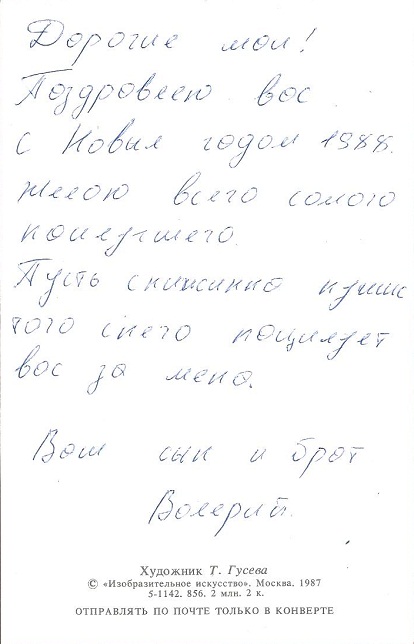 Дорогие мои!
Поздравляю вас
с Новым годом 1988.
Желаю всего самого
наилучшего.
Пусть снежинка пушис
того снега поцелует
вас за меня.
Ваш сын и брат
Валерий.
Художник Т. Гусева
© «Изобразительное искусство». Москва. 1987
5-1142. 856. 2 млн. 2 к.
ОТПРАВЛЯТЬ ПО ПОЧТЕ ТОЛЬКО В КОНВЕРТЕ